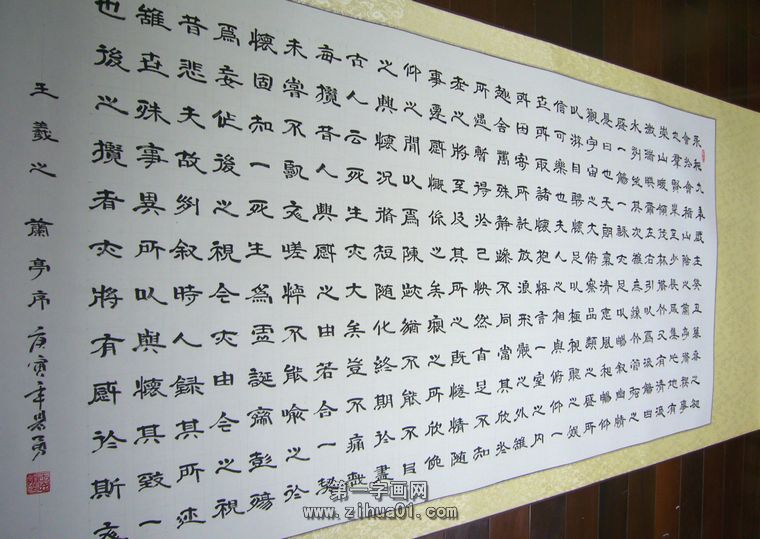 永和九年歲在癸丑暮春之初
會於會稽山陰之蘭亭脩禊事
也羣賢畢至少長咸集此地有
崇山峻領茂林脩竹又有清流
激湍映帶左右引以爲流觴曲
水列坐其次雖無絲竹管弦之
盛一觴一詠亦足以暢叙幽情
是日也天朗氣清惠風和暢仰
觀宇宙之大俯察品類之盛所
以游目騁懷足以極視聽之娛
信可樂也夫人之相與俯仰一
世或取諸懷抱悟言一室之內
或因寄所託放浪形骸之外雖
趣舍萬殊靜躁不同當其欣於
所遇暫得於己快然自足不知
老之將至及其所之既倦情隨
事遷感慨係之矣向之所欣俛
仰之間以爲陳跡猶不能不以
之興懷況脩短隨化終期於盡
古人云死生亦大矣豈不痛哉
每攬昔人興感之由若合一契
未嘗不臨文嗟悼不能喻之於
懷固知一死生爲虛誕齊彭殤
爲妄作後之視今亦由今之視
昔悲夫故列叙時人錄其所述
雖世殊事異所以興懷其致一
也後之攬者亦將有感於斯文
王羲之 蘭亭序 庚寅年
第一字画网
www.zihua01.com